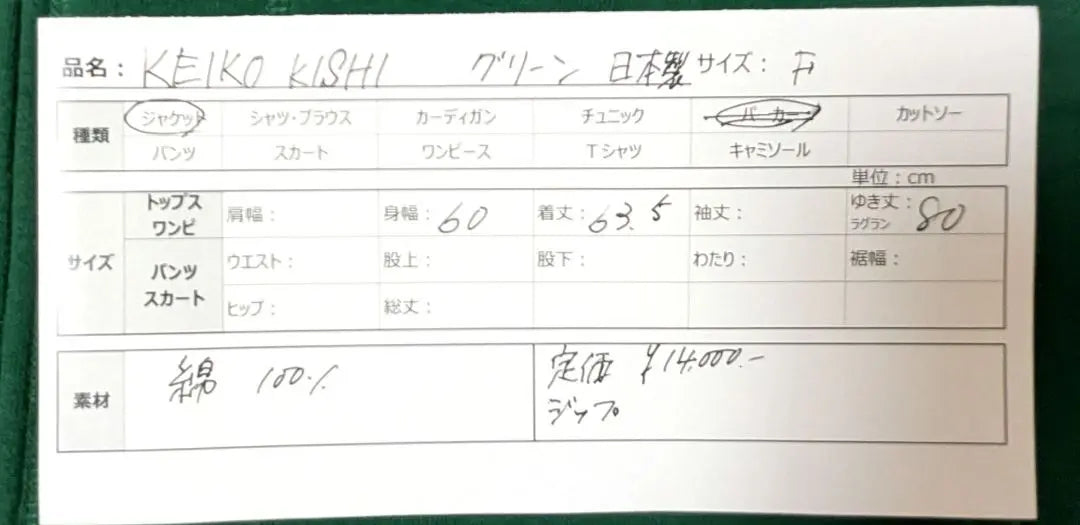 品名： KEIKO KISHI グリーン 日本製 サイズ： F
種類 ジャケット シャツ・ブラウス カーディガン チュニック パーカー カットソー
パンツ スカート ワンピース Tシャツ キャミソール
単位：cm
サイズ トップス ワンピ 肩幅： 身幅：60 着丈：63.5 袖丈： ゆき丈：ラグラン 80
パンツ スカート ウエスト： 股上： 股下： わたり： 裾幅：
ヒップ： 総丈：
素材 綿 100% 定価 ¥14,000.-
ジップ